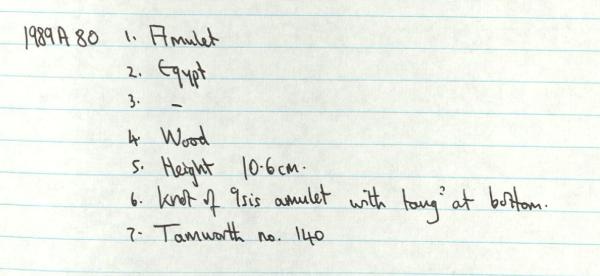 1989A80 1. Amulet
2. Egypt
3. -
4. Wood
5. Height 10.6cm.
6. Knot of Isis amulet with tang? at bottom.
7. Tamworth no. 140